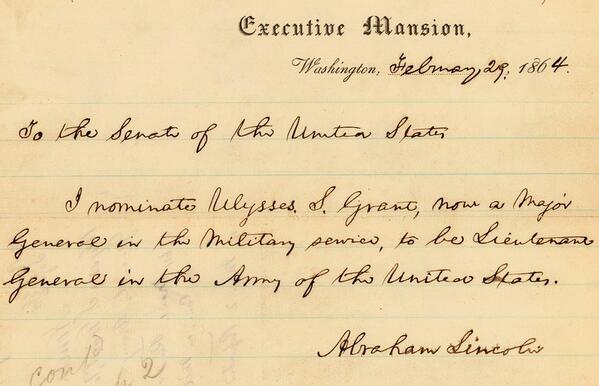 Executive Mansion,
Washington, February 29, 1864.
To the Senate of the United States
I nominate Ulysses. S. Grant, now a Major
General in the Military service, to be Lieutenant
General in the Army of the United States.
Abraham Lincoln